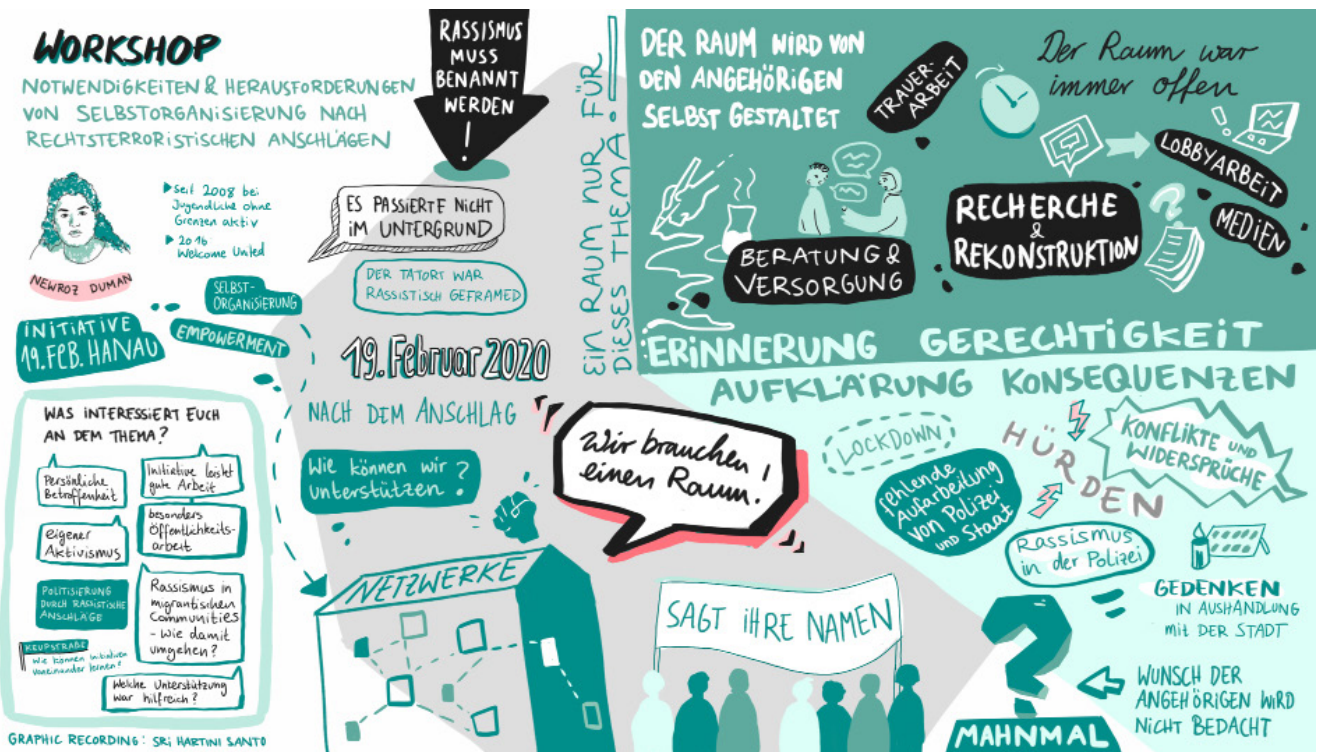 WORKSHOP
NOTWENDIGKEITEN & HERAUSFORDERUNGEN
VON SELBSTORGANISIERUNG NACH
RECHTSTERRORISTISCHEN ANSCHLÄGEN
NEWROZ DUMAN
▶ Seit 2008 bei
Jugendliche ohne
Grenzen aktiv
▶ 2016
Welcome United
SELBST-
ORGANISIERUNG
EMPOWERMENT
INITIATIVE
19. FEB. HANAU
WAS INTERESSIERT EUCH
AN DEM THEMA?
Persönliche
Betroffenheit
Initiative leistet
gute Arbeit
besonders
Öffentlichkeits-
arbeit
eigener
Aktivismus
POLITISIERUNG
DURCH RASSISTISCHE
ANSCHLÄGE
Rassismus in
migrantischen
Communities
- wie damit
umgehen?
KEUPSTRAßE
Wie können Initiativen
voneinander lernen?
Welche Unterstützung
war hilfreich?
GRAPHIC RECORDING: SRI HARTINI SANTO
RASSISMUS
MUSS
BENANNT
WERDEN
!
ES PASSIERTE NICHT
IM UNTERGRUND
DER TATORT WAR
RASSISTISCH GEFRAMED
19. Februar 2020
NACH DEM ANSCHLAG
Wie können wir
unterstützen?
NETZWERKE
EIN RAUM NUR FÜR
DIESES THEMA!
Wir brauchen
einen Raum!
SAGT IHRE NAMEN
DER RAUM WIRD VON
DEN ANGEHÖRIGEN
SELBST GESTALTET
TRAUER-
ARBEIT
Der Raum war
immer offen
BERATUNG &
VERSORGUNG
RECHERCHE
&
REKONSTRUKTION
LOBBYARBEIT
MEDIEN
ERINNERUNG GERECHTIGKEIT
AUFKLÄRUNG KONSEQUENZEN
LOCKDOWN
HÜRDEN
KONFLIKTE UND
WIDERSPRÜCHE
fehlende
Aufarbeitung
von Polizei
und Staat
Rassismus
in der Polizei
GEDENKEN
IN AUSHANDLUNG
MIT DER STADT
?
MAHNMAL
WUNSCH DER
ANGEHÖRIGEN WIRD
NICHT BEDACHT